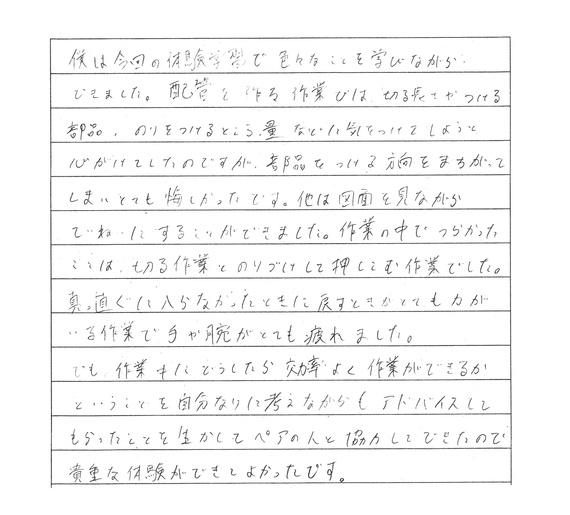 僕は今回の体験学習で色々なことを学びながら
できました。配管を作る作業では、切る長さやつける
部品、のりをつけるところ、量などに気をつけてしようと
心がけてしたのですが、部品をつける方向をまちがって
しまいとても悔しかったです。他は図面を見ながら
ていねいにすることができました。作業の中でつらかった
ことは、切る作業とのりづけして押しこむ作業でした。
真っ直ぐに入らなかったときに戻すときがとても力が
いる作業で手や腕がとても疲れました。
でも、作業中にどうしたら効率よく作業ができるか
ということを自分なりに考えながらもアドバイスして
もらったことを生かしてペアの人と協力してできたので
貴重な体験ができてよかったです。